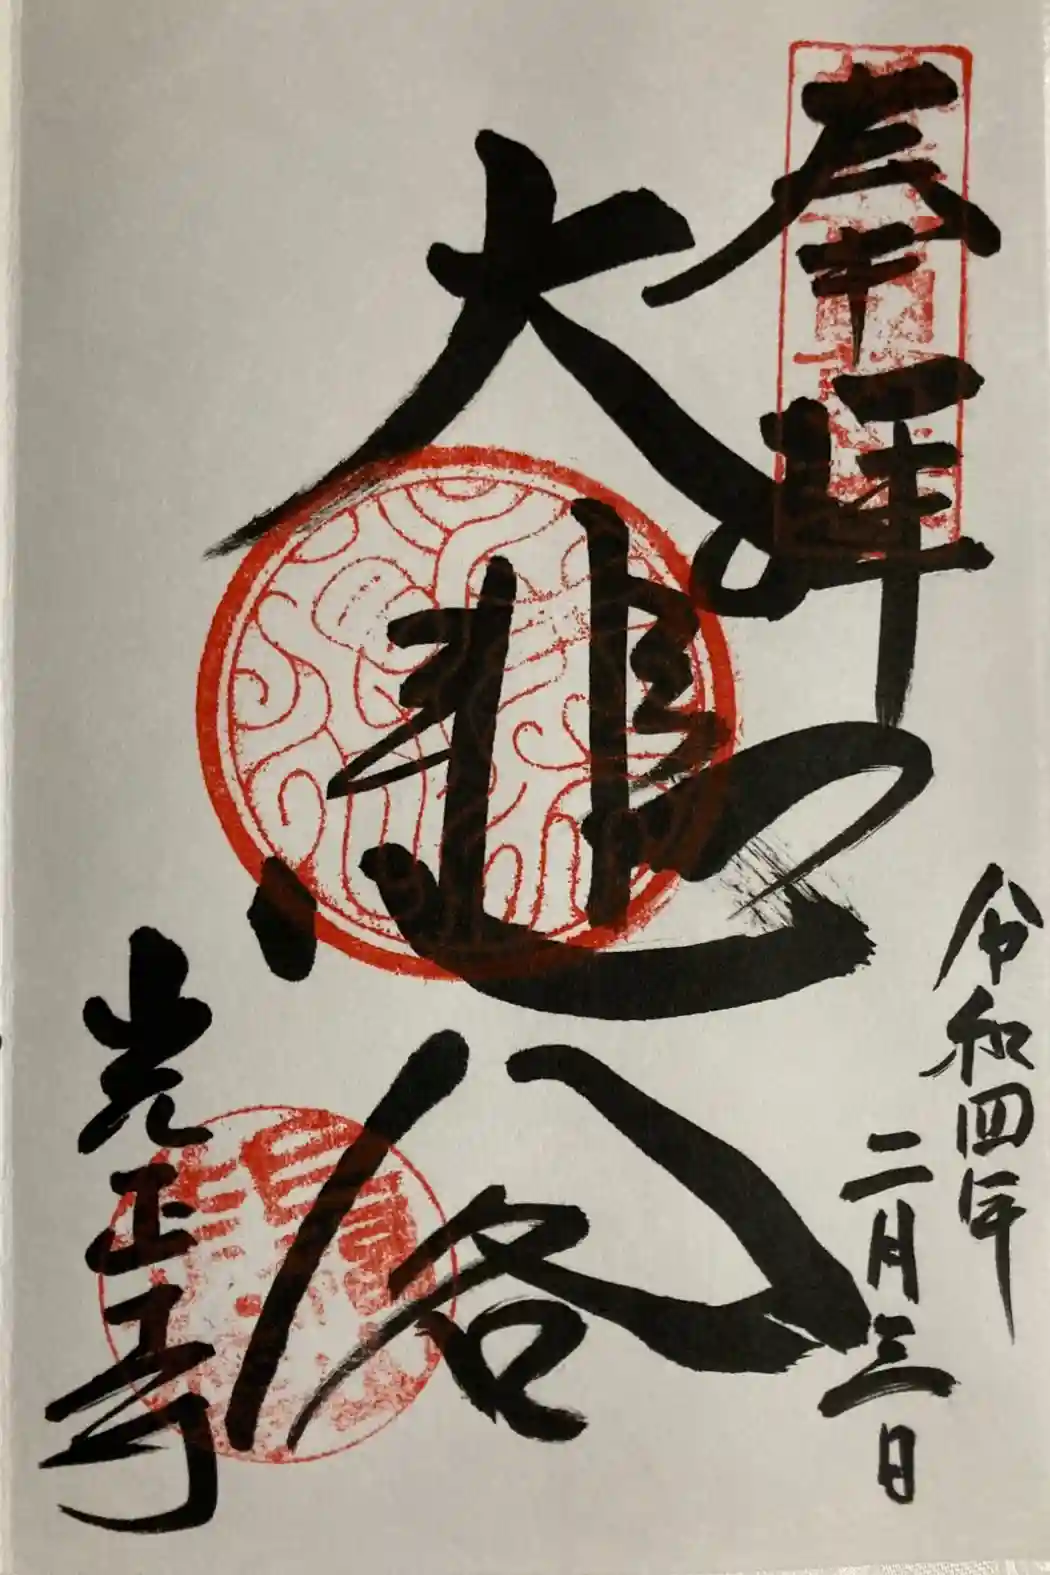 奉拝
令和四年
二月三日
大悲
光正寺